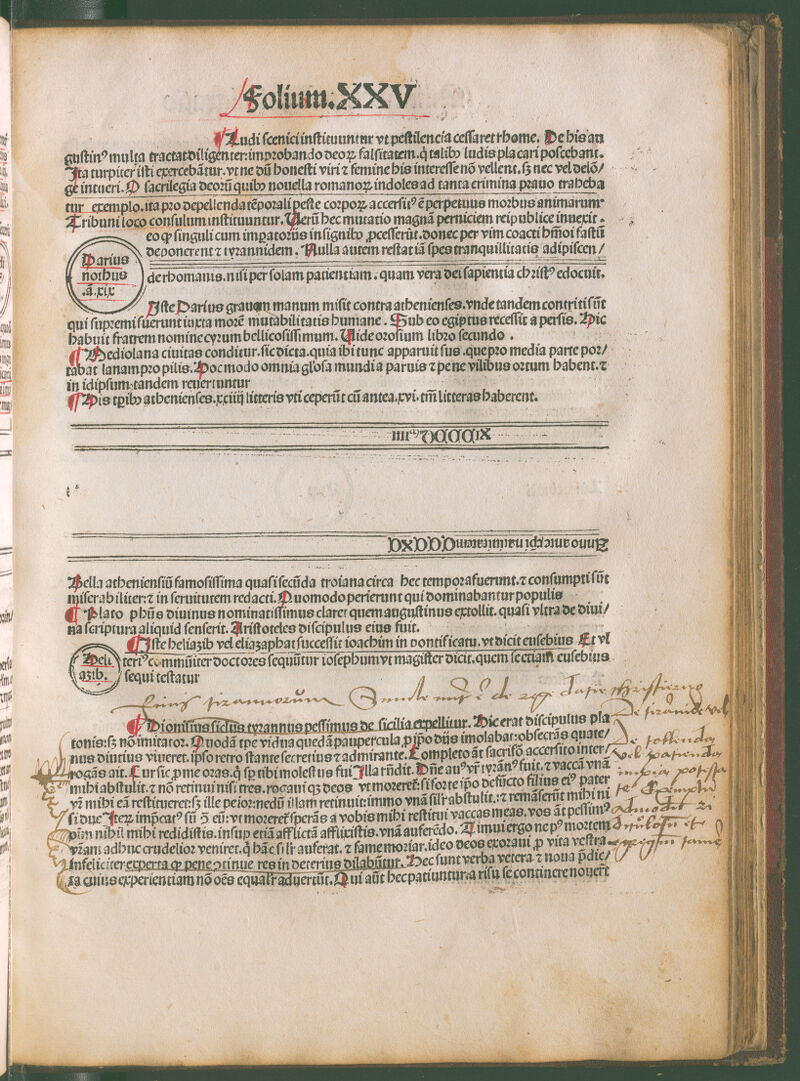 Folium. XXV
¶ Ludi scenici instituuntur vt pestilencia cessaret rhome. De his au
gustinꝰ multa tractat diligenter: improbando deoꝝ falsitatem. q̇ talibꝰ ludis placari poscebant.
Ita turpiter isti exercebãtur. vt ne dũ honesti viri ⁊ femine his interesse nõ vellent. sꝫ nec vel delõ/
ge intueri. O sacrilegia deorũ quibꝰ nouella romanoꝝ indoles ad tanta crimina prauo traheba
tur exemplo. ita pro depellenda tẽporali peste corpoꝝ accersitꝰ ẽ perpetuus morbus animarum
Tribuni loco consulum instituuntur. Uerũ hec mutatio magnã perniciem reipublice inuexit.
eo ꝙ singuli cum imꝑatoriis insignibꝰ ꝓcesserũt. donec per vim coacti hmõi fastũ
deponerent ⁊ tyrannidem. Nulla autem restat iã spes tranquillitatis adipiscen/
Darius
nothus
.ã.xix
de rhomanis. nisi per solam patientiam. quam vera dei sapientia christꝰ edocuit.
Iste Darius grauem manum misit contra athenienses. vnde tandem contriti sũt
qui supremi fuerunt iuxta morẽ mutabilitatis humane. Sub eo egiptus recessit a persis. Hic
habuit fratrem nomine cyrum bellicosissimum. Uide orosium libro secundo.
¶ Mediolana ciuitas conditur. sic dicta. quia ibi tunc apparuit sus. que pro media parte por/
tabat lanam pro pilis. Hoc modo omnia glosa mundi a paruis ⁊ pene vilibus ortum habent. ⁊
in idipsum tandem reuertuntur
¶ His tꝑibꝰ athenienses. xxiiij litteris vti ceperũt cũ antea. xvi. tm̃ litteras haberent.
Bella atheniensiũ famosissima quasi secũda troiana circa hec tempora fuerunt. ⁊ consumpti sũt
miserabiliter: ⁊ in seruitutem redacti. Quomodo perierunt qui dominabantur populis
¶ Plato phũs diuinus nominatissimus claret quem augustinus extollit. quasi vltra de diui/
na scriptura aliquid senserit. Aristoteles discipulus eius fuit.
¶ Iste heliazib vel eliazaphat successit ioachim in pontificatu. vt dicit eusebius Et vl
Heli
azib.
teriꝰ commũiter doctores sequũtur iosephum vt magister dicit. quem se etiam eusebius
sequi testatur
¶ Dionisius siclus tyrannus pessimus de sicilia expellitur. Hic erat discipulus pla
tonis: sꝫ nõ imitator. Quodã tpe vidua quedã paupercula, ꝓ ipõ diis imolabat: obsecrãs quate/
nus diutius viueret. ipso retro stante secretius ⁊ admirante. Completo ãt sacrifiõ accersito inter/
rogãs ait. Cur sic ꝓ me oras. q̇ sꝑ tibi molestus fui Illa rñdit. Dñe auꝰ vr̃ tyrãnꝰ fuit. ⁊ vaccã vnã
mihi abstulit. ⁊ nõ retinui nisi tres. rogaui qꝫ deos vt moreret̃. si forte ipõ defũcto filius eiꝰ pater
vr̃ mihi eã restitueret: sꝫ ille peior. nedũ illam retinuit: immo vnã sil̃r abstulit. ⁊ remãserũt mihi ni
si due Iteꝝ imp̃cat' sũ
p̃m nihil mihi redidistis. insuꝑ etiã afflictã afflixistis. vnã auferẽdo. Timui ergo ne pꝰ mortem
vr̃am adhuc crudelior veniret. q̇ hãc sil̃r auferat. ⁊ fame moriar. ideo deos exoraui ꝓ vita vestra
Infeliciter experta ꝙ pene ꝯtinue res in deterius dilabũtur. Hec sunt verba vetera ⁊ noua p̃dic/
ta cuius experientiam nõ oẽs equalr̃ aduertũt. Qui aũt hec patiuntur: a risu se continere nouer̃t